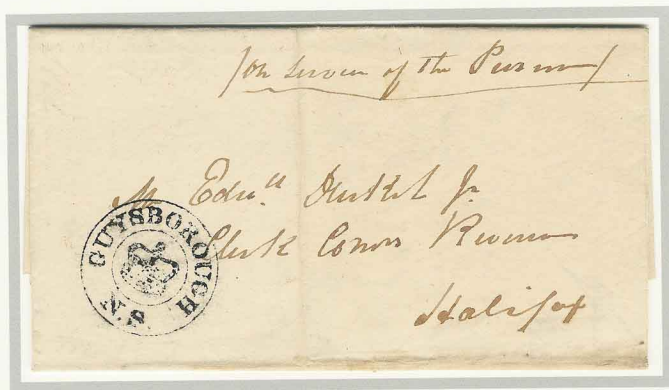 on Service of the Revenue
Mr Edwd Jr
Clerk Comrs Revenue
Halifax
GUYSBOROUGH
N.S.